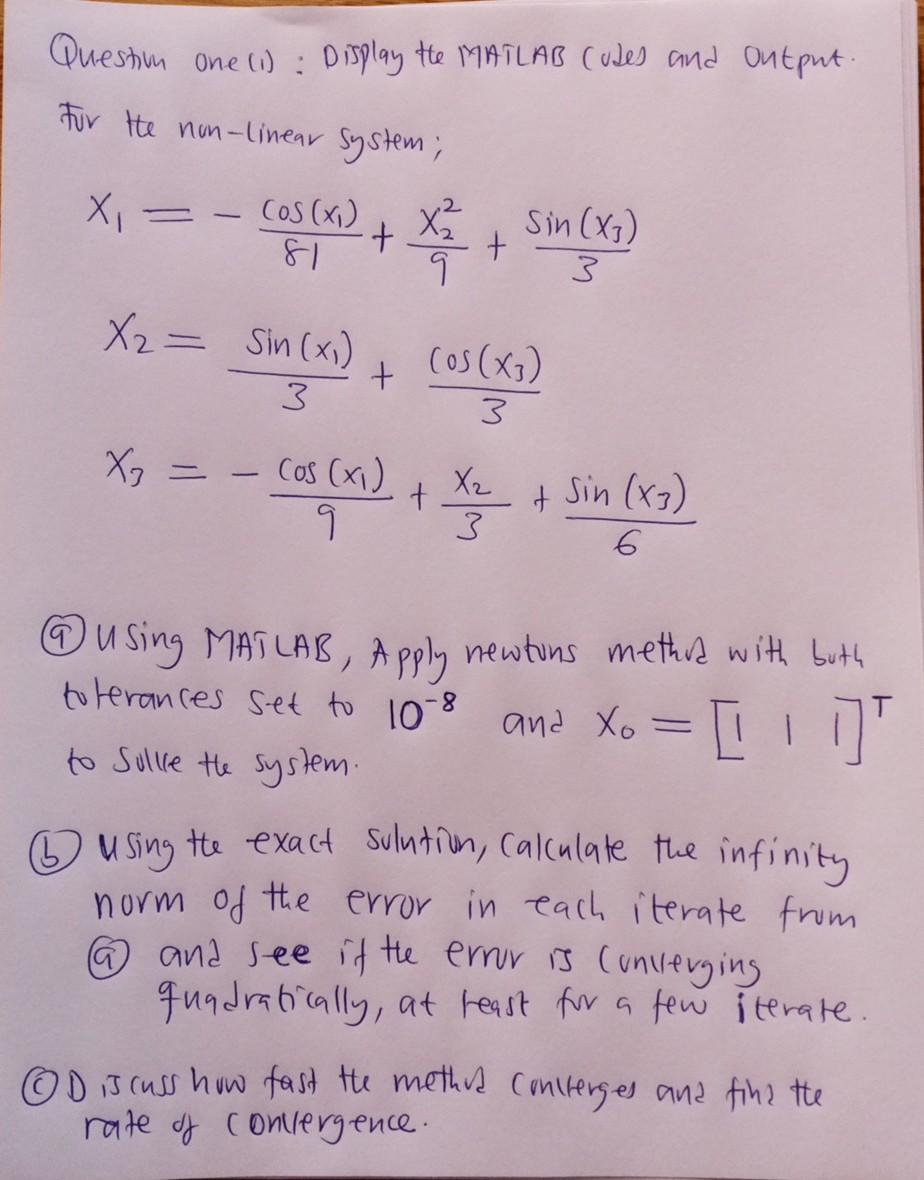 Question one (i) : Display the MATLAB Codes and Output.
For the non-linear system;
X₁ = - cos(x₁)/81 + X₂²/9 + sin(X₃)/3
X₂ = sin(x₁)/3 + cos(X₃)/3
X₃ = - cos(x₁)/9 + X₂/3 + sin(x₃)/6
(a) Using MATLAB, Apply newtons method with both
tolerances set to 10⁻⁸ and X₀ = [1 1 1]ᵀ
to solve the system.
(b) Using the exact solution, Calculate the infinity
norm of the error in each iterate from
(a) and see if the error is converging
quadratically, at least for a few iterate.
(c) Discuss how fast the method converges and find the
rate of convergence.